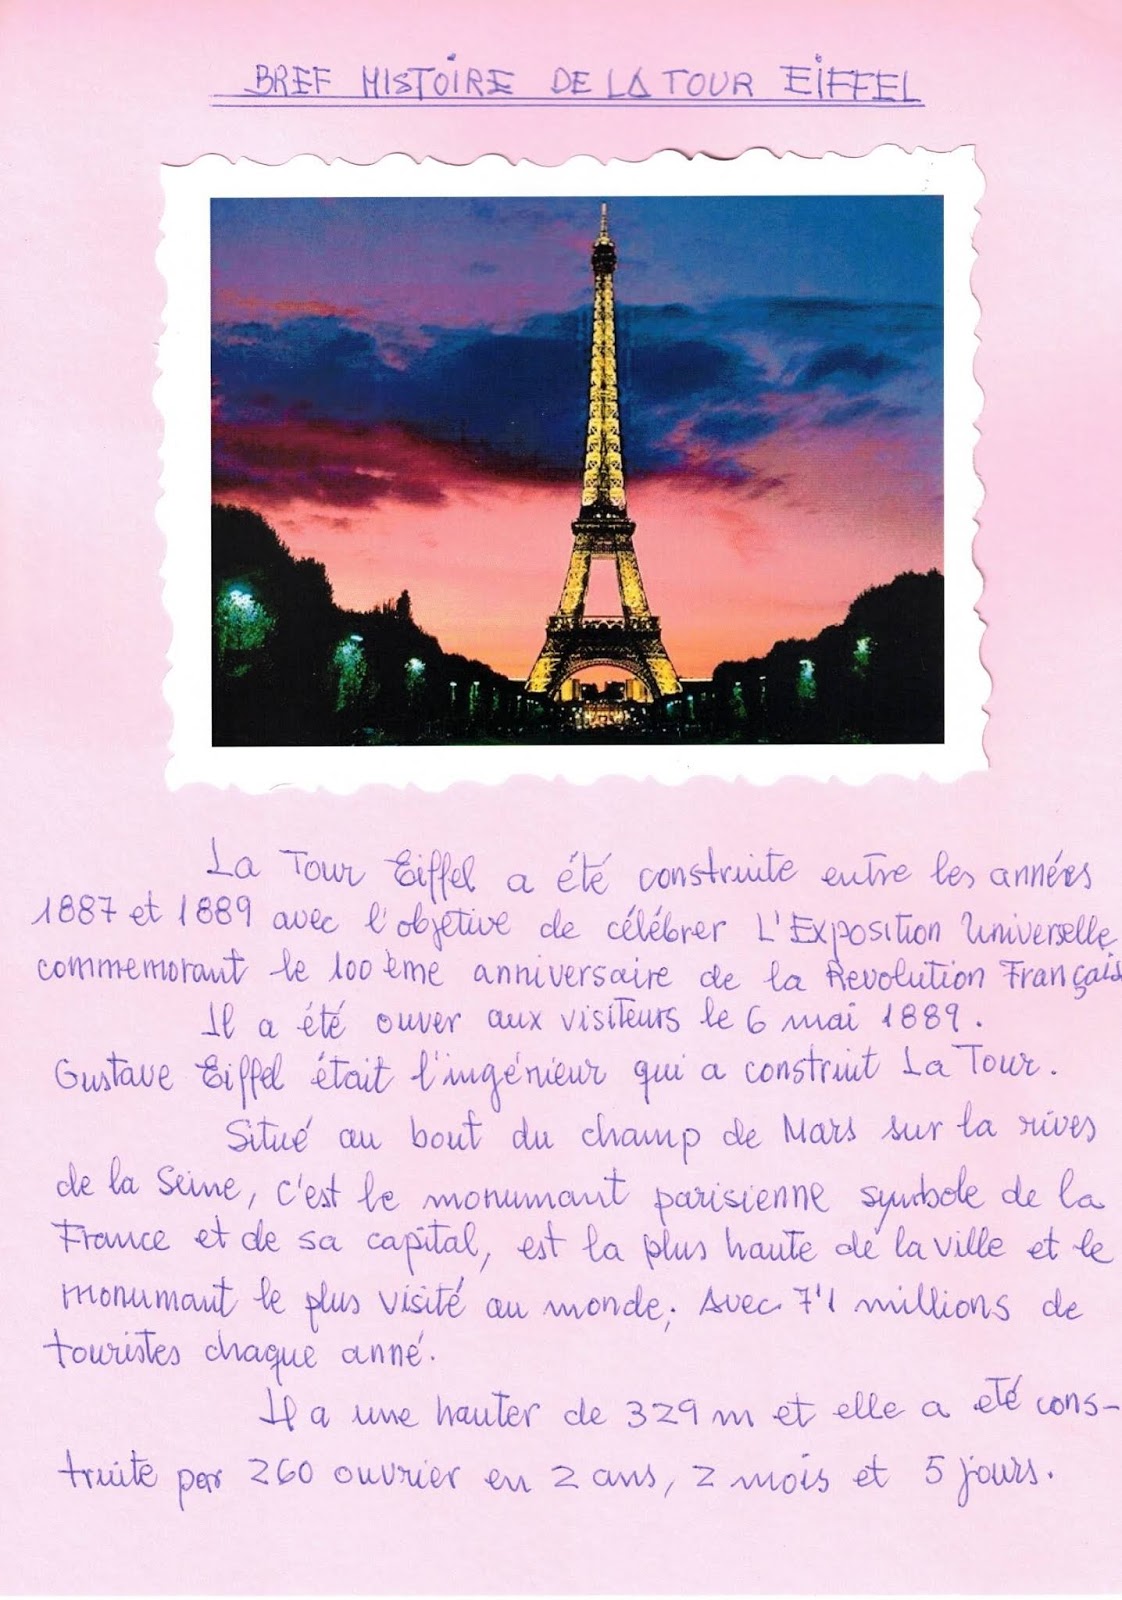 BREF HISTOIRE DE LA TOUR EIFFEL
La Tour Eiffel a été construite entre les années
1887 et 1889 avec l'objetive de célébrer L'Exposition Universelle,
commemorant le 100ème anniversaire de la Revolution Français
Il a été ouver aux visiteurs le 6 mai 1889.
Gustave Eiffel était l'ingénieur qui a construit La Tour.
Situé au bout du champ de Mars sur la rives
de la Seine, c'est le monumant parisienne symbole de la
France et de sa capital, est la plus haute de la ville et le
monumant le plus visité au monde; Avec 7'1 millions de
touristes chaque anné.
Il a une hauter de 329 m et elle a eté cons-
truite par 260 ouvrier en 2 ans, 2 mois et 5 jours.